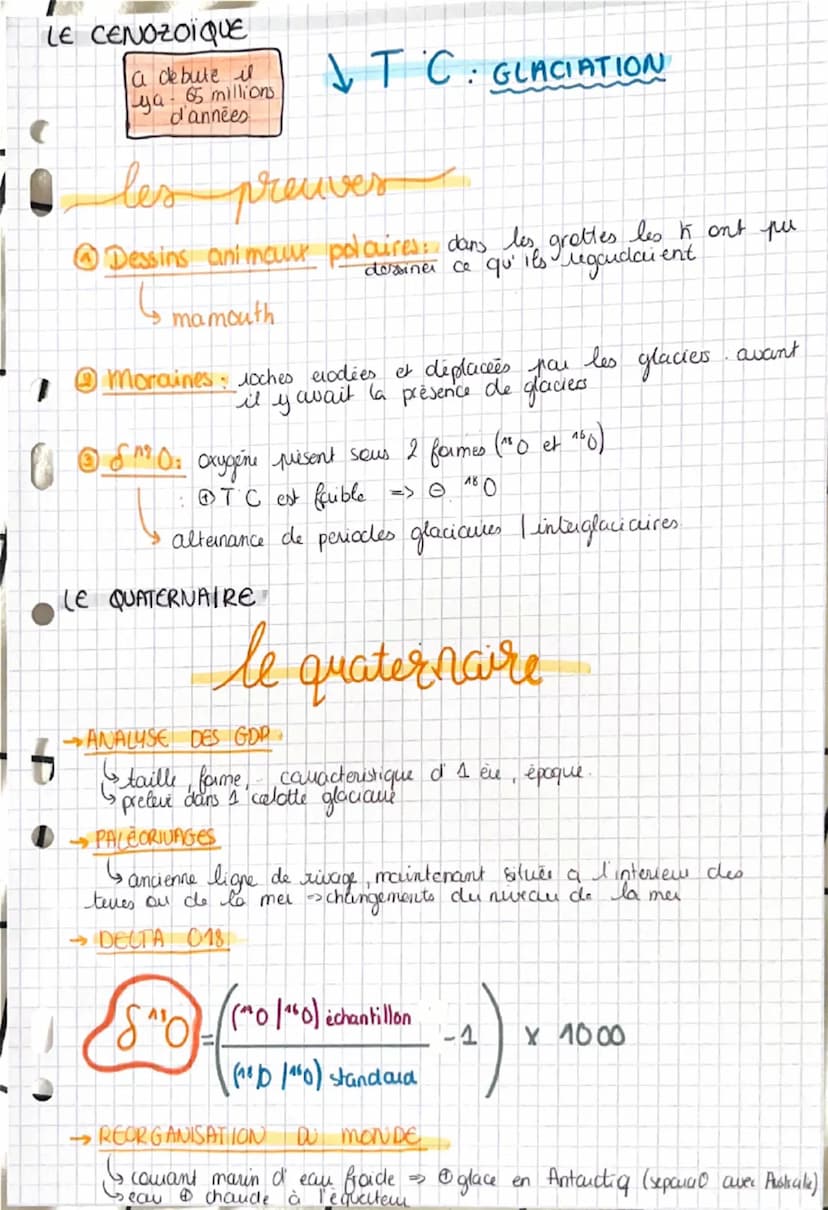 LE CENOZOÏQUE
a debuté il
ya - 65 millions
d'années
↓ T°C : GLACIATION
les preuves
① Dessins animaux polaires: dans les grottes les h ont pu
dessiner ce qu'ils regardaient
↳ mamouth
② Moraines : roches erodées et déplacées par les glaciers . avant
il y avait la présence de glaciers
③ δ¹⁸O: oxygène présent sous 2 formes (¹⁸O et ¹⁶O)
: ⊕ T°C est faible => ⊖ ¹⁸O
↳ alternance de periodes glaciaires / interglaciaires
LE QUATERNAIRE
le quaternaire
→ ANALYSE DES GDP
↳ taille, forme, - caracteristique d'1 ère, époque.
↳ prelevé dans 1 calotte glaciaire
→ PALÉORIVAGES
↳ ancienne ligne de rivage, maintenant située a l'interieur des
terres ou de la mer -> changements du niveau de la mer
→ DELTA O18
δ¹⁸O = ( (¹⁸O / ¹⁶O) échantillon
- 1 ) x 1000
(¹⁸O / ¹⁶O) standard
→ REORGANISATION DU MONDE
↳ courant marin d'eau froide => ⊕ glace en Antarctiq (separa° avec Australie)
↳ eau ⊕ chaude à l'équateur